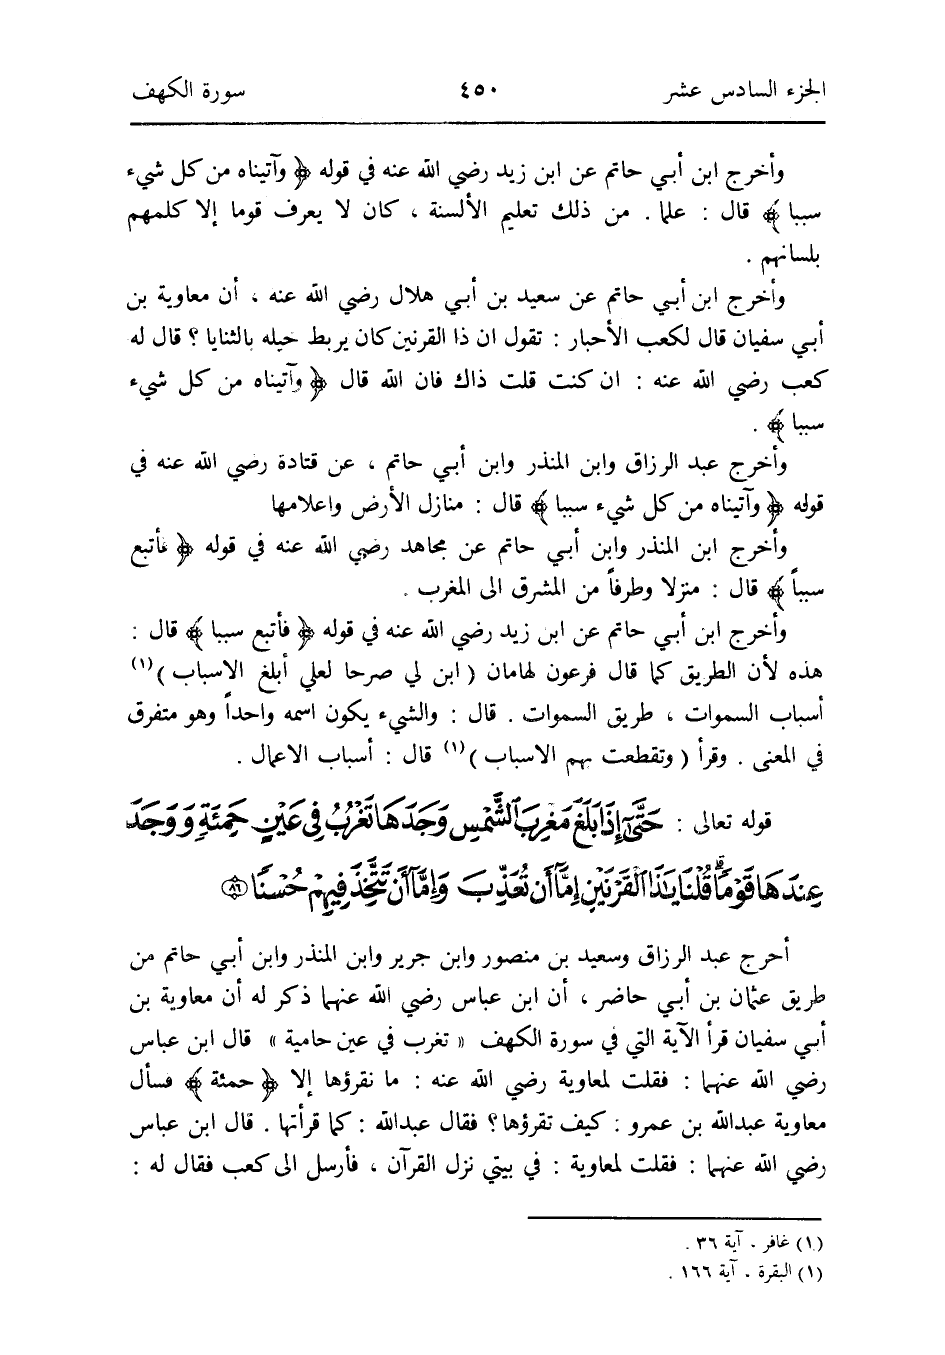 الجزء السادس عشر ٤٥٠ سورة الكهف
وأخرج ابن أبي حاتم عن ابن زيد رضي الله عنه في قوله ﴿ وآتيناه من كل شيء
سببا ﴾ قال : علما . من ذلك تعليم الألسنة ، كان لا يعرف قوما إلا كلمهم
بلسانهم .
وأخرج ابن أبي حاتم عن سعيد بن أبي هلال رضي الله عنه ، أن معاوية بن
أبي سفيان قال لكعب الأحبار : تقول ان ذا القرنين كان يربط خيله بالثنايا ؟ قال له
كعب رضي الله عنه : ان كنت قلت ذاك فان الله قال ﴿ وآتيناه من كل شيء
سببا ﴾ .
وأخرج عبد الرزاق وابن المنذر وابن أبي حاتم ، عن قتادة رضي الله عنه في
قوله ﴿ وآتيناه من كل شيء سببا ﴾ قال : منازل الأرض واعلامها
وأخرج ابن المنذر وابن أبي حاتم عن مجاهد رضي الله عنه في قوله ﴿ فأتبع
سبباً ﴾ قال : منزلا وطرفاً من المشرق الى المغرب .
وأخرج ابن أبي حاتم عن ابن زيد رضي الله عنه في قوله ﴿ فأتبع سببا ﴾ قال :
هذه لأن الطريق كما قال فرعون لهامان ( ابن لي صرحا لعلي أبلغ الاسباب )(١)
أسباب السموات ، طريق السموات . قال : والشيء يكون اسمه واحداً وهو متفرق
في المعنى . وقرأ ( وتقطعت بهم الاسباب )(١) قال : أسباب الاعمال .
قوله تعالى : حَتَّىٰٓ إِذَا بَلَغَ مَغْرِبَ ٱلشَّمْسِ وَجَدَهَا تَغْرُبُ فِى عَيْنٍ حَمِئَةٍ وَوَجَدَ
عِندَهَا قَوْمًا ۗ قُلْنَا يَٰذَا ٱلْقَرْنَيْنِ إِمَّآ أَن تُعَذِّبَ وَإِمَّآ أَن تَتَّخِذَ فِيهِمْ حُسْنًا ٨٦
أخرج عبد الرزاق وسعيد بن منصور وابن جرير وابن المنذر وابن أبي حاتم من
طريق عثمان بن أبي حاضر ، أن ابن عباس رضي الله عنهما ذكر له أن معاوية بن
أبي سفيان قرأ الآية التي في سورة الكهف « تغرب في عين حامية » قال ابن عباس
رضي الله عنهما : فقلت لمعاوية رضي الله عنه : ما نقرؤها إلا ﴿ حمئة ﴾ فسأل
معاوية عبدالله بن عمرو : كيف تقرؤها ؟ فقال عبدالله : كما قرأتها . قال ابن عباس
رضي الله عنهما : فقلت لمعاوية : في بيتي نزل القرآن ، فأرسل الى كعب فقال له :
(١) غافر . آية ٣٦ .
(١) البقرة . آية ١٦٦ .